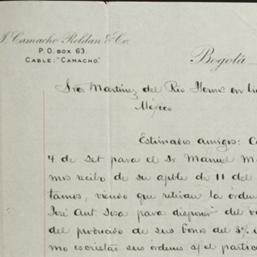 J. Camacho Roldan & Co.
P.O. BOX 63.
CABLE: "CAMACHO."
Bogotá
Sres Martinez del Rio Hermˢ en
Mexico
Estimados amigos:
4 de Set para el Sr Manuel M
mos recibo de su apble de 11 del
tamos, viendo que retiran la órden
José Ant. Sosa para disponer del
del producido de sus bonos del 3%
mo escristas sus órdenes s/ el partic